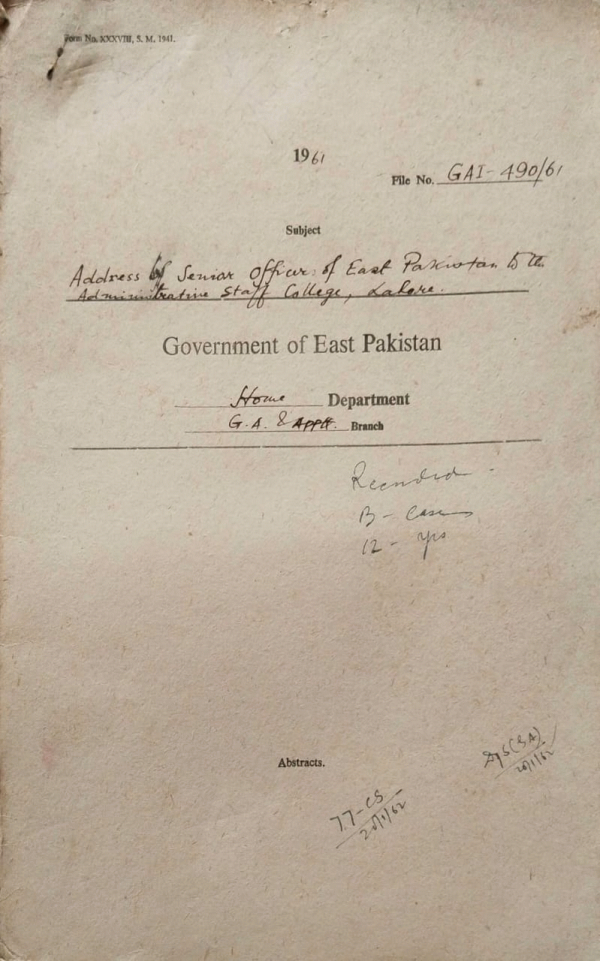 Form No. XXXVIII, S. M. 1941.
1961
File No. GAI-490/61
Subject
Address of Senior Officers of East Pakistan to the
Administrative Staff College, Lahore.
Government of East Pakistan
Home Department
G.A. & Apptt. Branch
Recorded -
B - Cases
12 - yrs
Abstracts.
DyS(GA)
20/1/62
77-CS
20/1/62